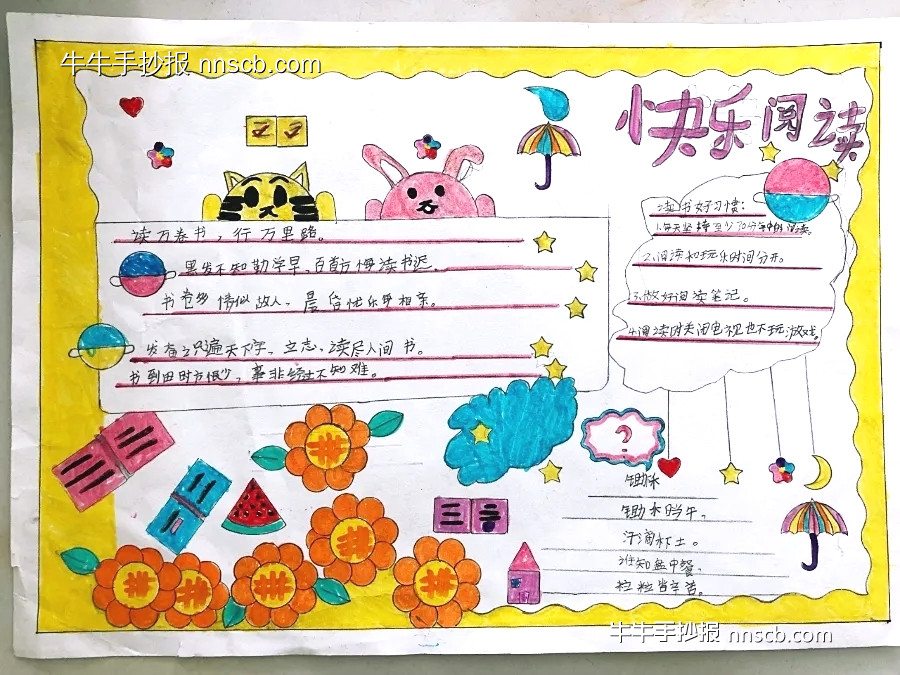 牛牛手抄报 nnscb.com
快乐阅读
读万卷书，行万里路。
黑发不知勤学早，白首方悔读书迟。
书卷多情似故人，晨昏忧乐每相亲。
发奋识遍天下字，立志读尽人间书。
书到用时方恨少，事非经过不知难。
读书好习惯：
1.每天坚持至少30分钟的阅读。
2.阅读和玩乐时间分开。
3.做好阅读笔记。
4.阅读时关闭电视也不玩游戏。
?
锄禾
锄禾日当午，
汗滴禾下土。
谁知盘中餐，
粒粒皆辛苦。
牛牛手抄报 nnscb.com